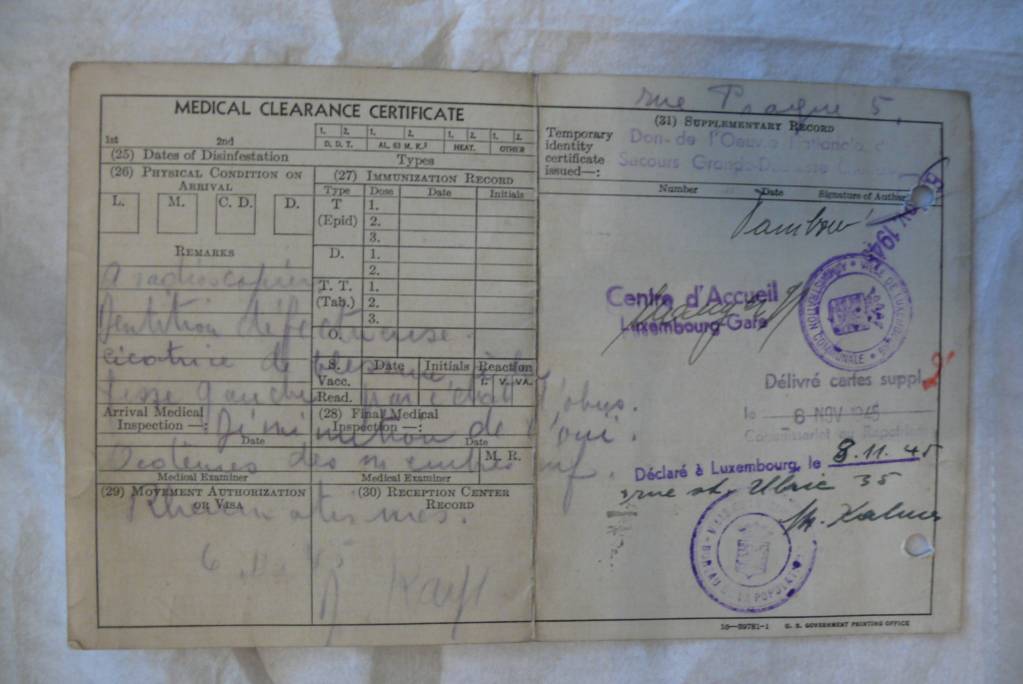 MEDICAL CLEARANCE CERTIFICATE
1st 2nd
1. 2. 1. 2. 1. 2. 1. 2.
D. D. T. AL. 63 M. K.² HEAT. OTHER
(25) Dates of Disinfestation Types
(26) Physical Condition on Arrival
L. M. C. D. D.
Remarks
A radioscopier
Dentition défectueuse.
cicatrice de blessure à la
fesse gauche par éclat d'obus.
Diminution de l'ouï.
Oedèmes des membres inf.
Rhumatismes.
6.11.45
(27) Immunization Record
Type Dose Date Initials
T (Epid) 1.
2.
3.
D. 1.
2.
T. T. (Tab.) 1.
2.
3.
S. Date Initials Reaction
Vacc. I. V. VA.
Read.
Arrival Medical Inspection—:
Date
Medical Examiner
(28) Final Medical Inspection—:
Date
M. R.
Medical Examiner
(29) Movement Authorization or Visa
(30) Reception Center Record
rue Prague 5,
(31) Supplementary Record
Temporary identity certificate issued—:
Don de l'Oeuvre Nationale de
Secours Grande-Duchesse
Number Date Signature of
Centre d'Accueil
Luxembourg-Gare
ADMINISTRATION COMMUNALE VILLE DE LUXEMBOURG
Délivré cartes suppl.
le 8 NOV 1945
Déclaré à Luxembourg, le 8.11.45
rue st. Ulric 35
BUREAU DE LA POPULATION
16—39781-1 U. S. GOVERNMENT PRINTING OFFICE